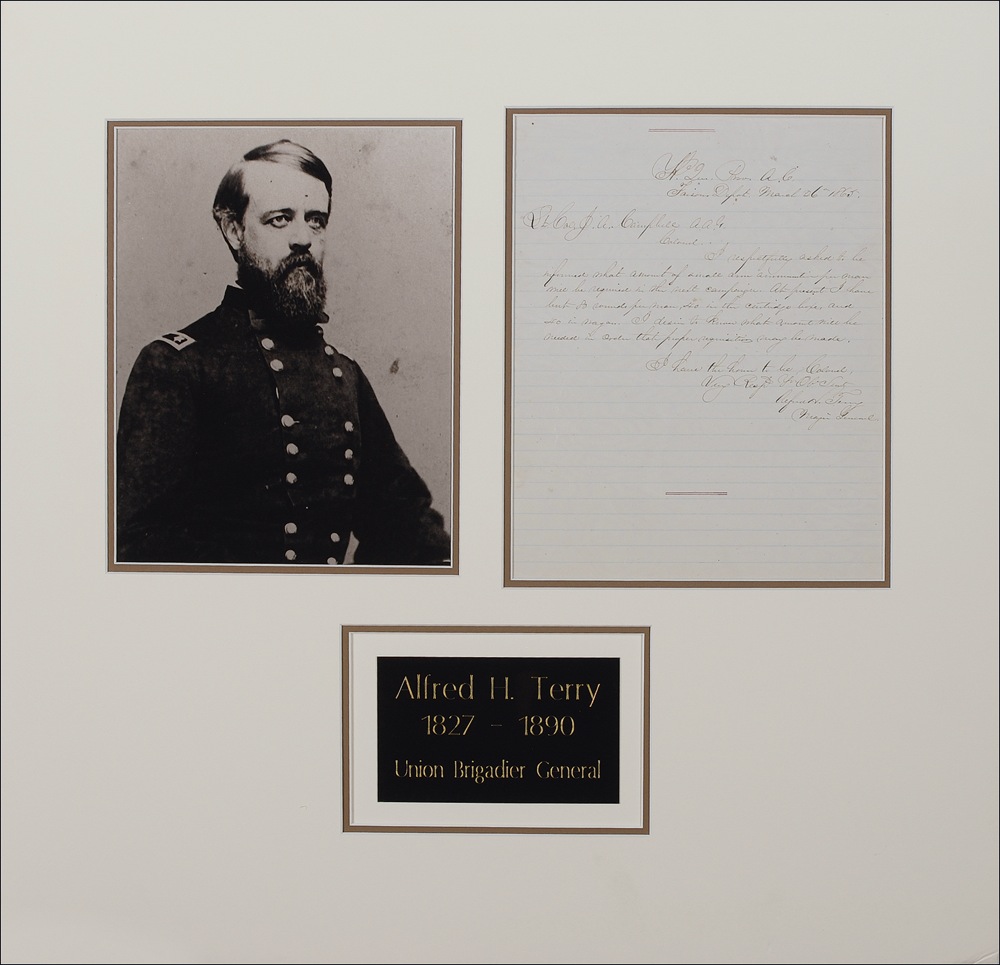 Hd. Qrs. Prov. A. C.
Faisons Depot March 26th 1865.
Lt Col J. A. Campbell A.A.G.
Colonel.
I respectfully asked to be
informed what amount of small arm ammunition per man
will be required in the next campaign. At present I have
but rounds per man, in the cartridge boxes and
50 in wagon. I desire to know what amount will be
needed in order that proper requisition may be made.
I have the honor to be Colonel,
Very Resp. Yr Ob Servt
Alfred H. Terry
Major General
Alfred H. Terry
1827 - 1890
Union Brigadier General